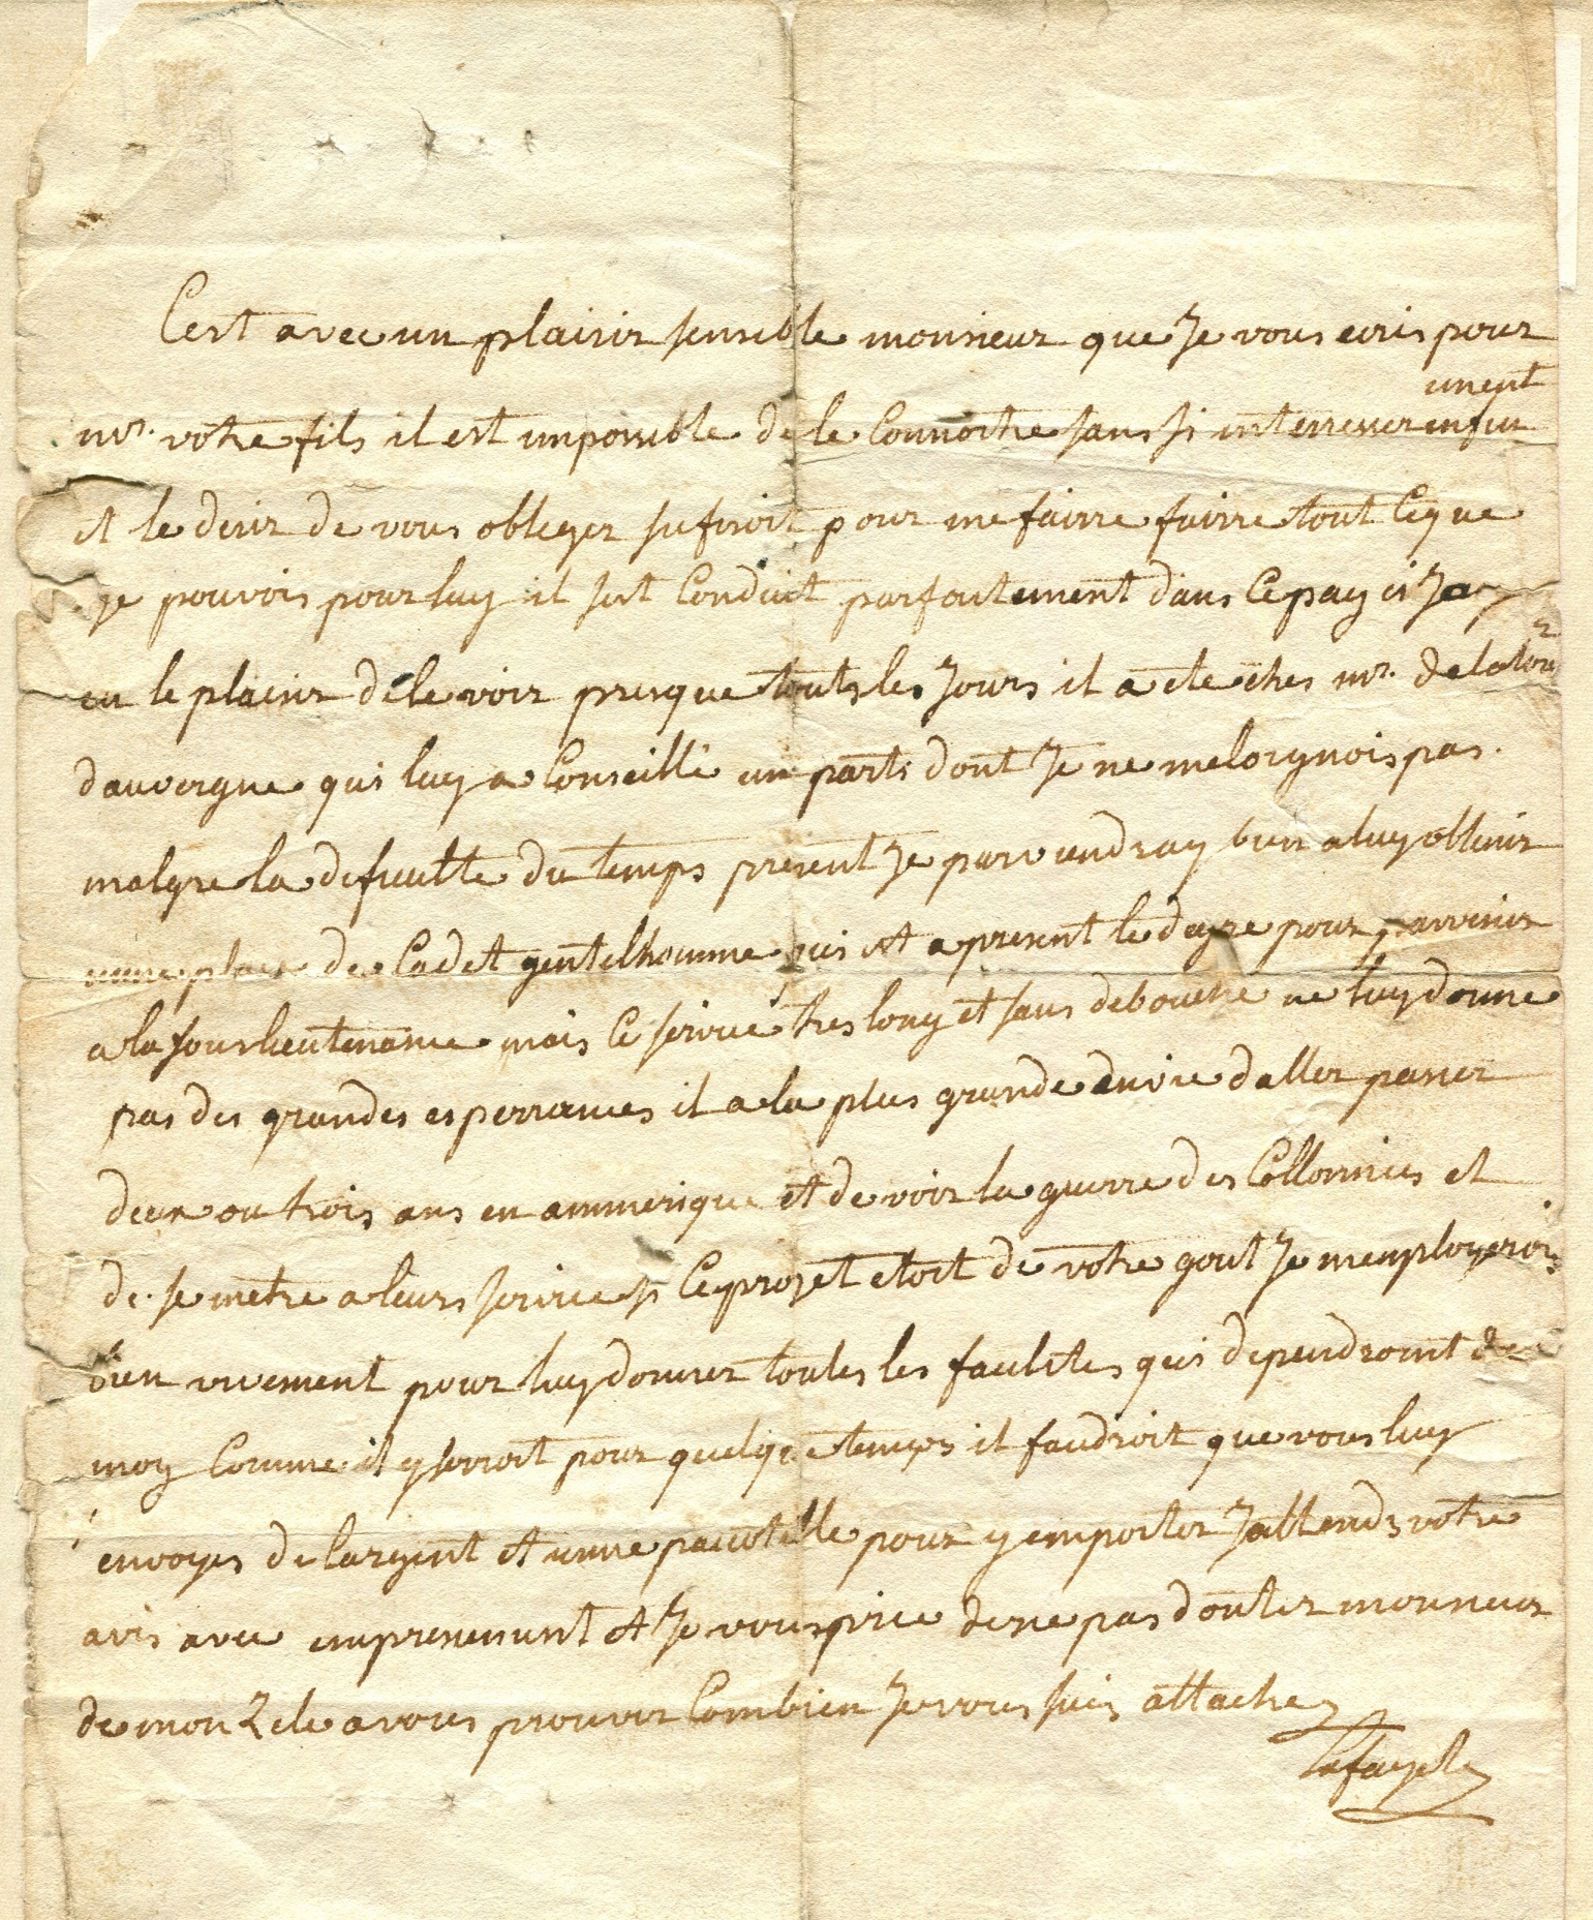 Cest avec un plaisir sensible monsieur que Je vous ecris pour
mr. votre fils il est impossible de le Connoitre sans si interresser infini
ment
et le desir de vous obleger sufiroit pour me fairre fairre tout Ceque
je pouvois pour luy il sest Conduit parfaitement dans Cepay ci Jay
eu le plaisir de le voir presque touts les Jours il a ete ches mr. delatour
dauvergne qui luy a Conseillé un parti dont Je ne meloignois pas.
malgre la dificulte du temps present Je parviendray bien a luy obtenir
unne place de Cadet gentelhomme qui est apresent le degre pour parvenir
a la souslieutenance mais Ce service tres long et sans debouche ne luy donne
pas des grandes esperrances il a la plus grande envie daller passer
deux ou trois ans en ammerique et de voir la guerre des Collonnies et
de se metre a leurs service si Ceprojet etoit de votre gout Je memployerois
bien vivement pour luy donner toutes les facultes qui dependroint de
moy Comme il y serroit pour quelque temps il faudroit que vous luy
envoyes de largent et unne pacotille pour y emporter Jattends votre
avis avec empressement et Je vous prie de ne pas douter monsieur
de mon zele a vous prouver Combien Je vous suis attache
Lafayette